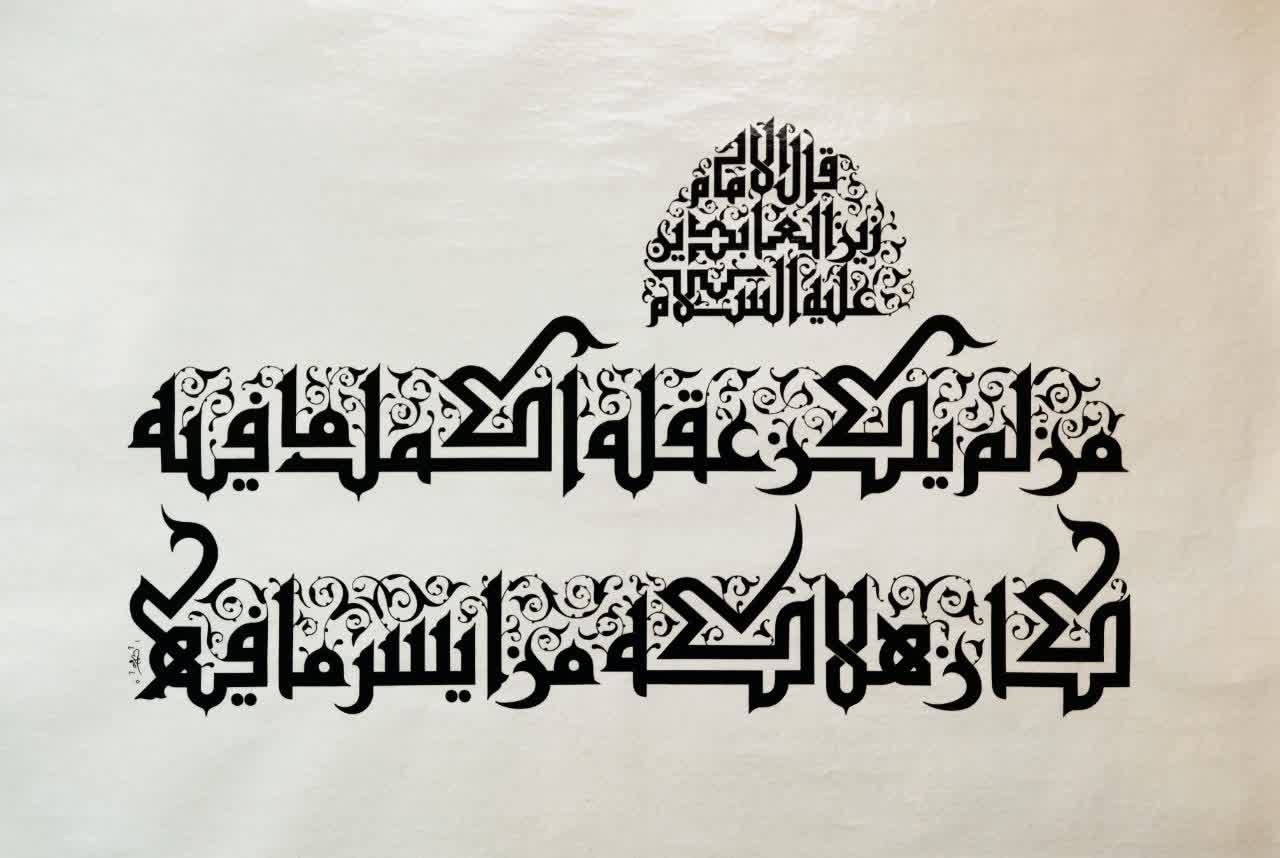 قال الامام
زين العابدين
عليه السلام
من لم يكن عقله اكمل ما فيه
كان هلاكه من ايسر ما فيه